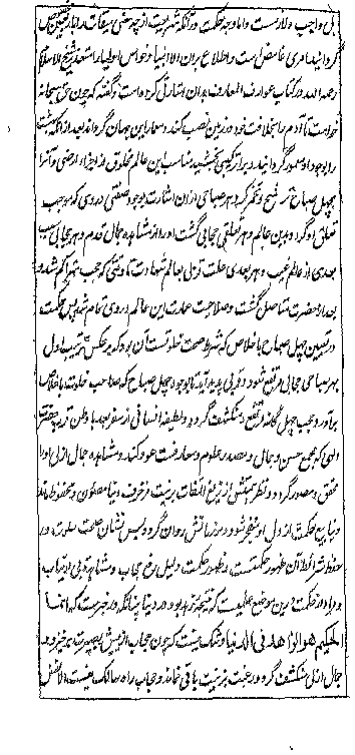 بلی واجب و لازمست و اما وجه حکمت در آنکه شریعت از چه معنی میقات را باربعین تعیین
گردانید امری غامض است و اطلاع بران الا انبیا و خواص اولیا را متعذر شیخ الاسلام
رحمه الله در کتاب عوارف المعارف بدان اشارتی کرده است و گفته که چون حق سبحانه
خواست تا آدم را بخلافت خود در زمین نصب کند و معمار این جهان گرداند بعد از انکه بهشت
را بوجود او معمور گردانید ویرا ترکیبی بخشید مناسب این عالم مخلوق از اجزاء ارضی و آنرا
بچهل صباح تخمیر کرد و هر صباحی ازان اشارت بوجود صفتی در وی که موجب
تعلق او گردد بدین عالم و هر تعلقی حجابی گشت او را از مشاهده جمال قدم و هر حجابی سبب
بعدی از عالم غیب و هر بعدی علت تنزلی بعالم شهادت تا وقتی که حجب متراکم شد و
بعد از حضرت متناصل گشت و صلاحیت عمارت این عالم در وی تمام شد پس حکمت
در تعیین چهل صباح باخلاص که شرط صحت خلوتست آن بود که بر عکس ترتیب اول
بهر صباحی حجابی مرتفع شود و قربی پدید آید تا بوجود چهل صباح که صاحب خلوت باخلاص
برآورد حجب چهل گانه مرتفع و منکشف گردد و لطیفه انسانی از سفر بعد باوطن قرب حضرت
الهی که مجمع حسن و جمال و مصدر علوم و معارفست عود کند و مشاهده جمال ازلی او را
محقق و مصور گردد و نظر همتش از زیغ التفات بزینت زخرف دنیا مصون و محفوظ ماند
و ینابیع حکمت از دل او منفجر شود و بر زبانش روان گردد پس نشان صحت خلوت و
حفظ شرائط آن ظهور حکمتست و ظهور حکمت دلیل رفع حجاب و مشاهده
و مراد از حکمت درین موضع علمیست که نتیجه زهد بود در دنیا چنانکه در خبرست که انما
الحکیم هو الزاهد فی الدنیا و شک نیست که چون حجاب از پیش بصیرت برخیزد و
جمال ازلی منکشف گردد رغبت بزینت باقی نماند و حجاب راه سالک